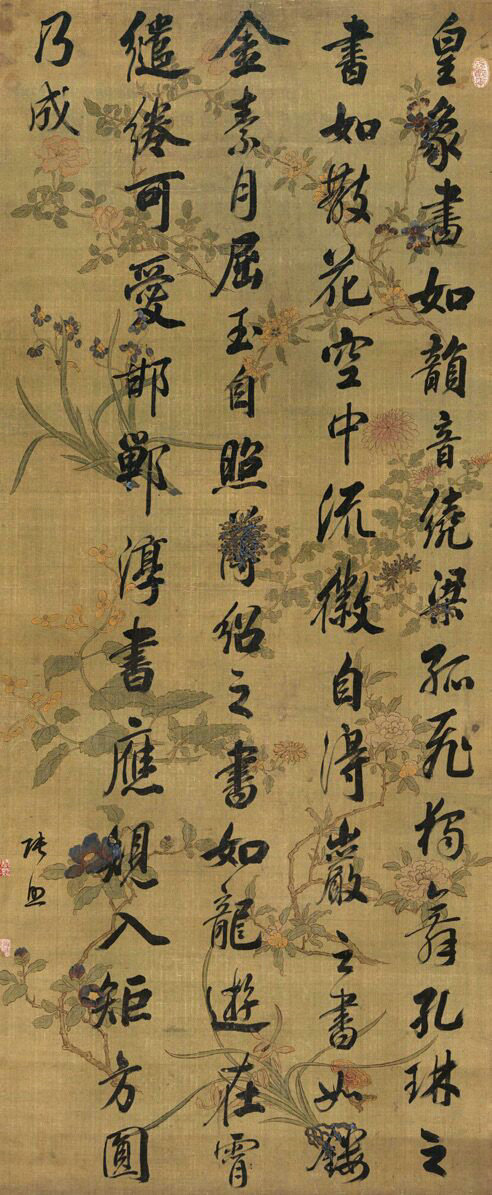 皇象書如韻音繞梁孤飛獨舞孔琳之
書如散花空中流徽自得巖之書如鏤
金素月屈玉自照薄紹之書如龍遊在霄
繾綣可愛邯鄲淳書應規入矩方圓
乃成
張照